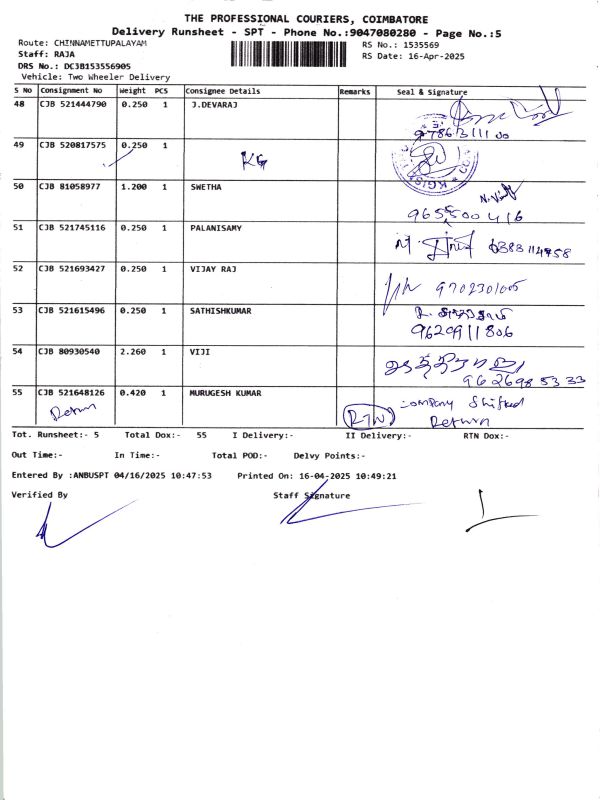 THE PROFESSIONAL COURIERS, COIMBATORE
Delivery Runsheet - SPT - Phone No.:9047080280 - Page No.:5
Route: CHINNAMETTUPALAYAM RS No.: 1535569
Staff: RAJA RS Date: 16-Apr-2025
DRS No.: DCJB153556905
Vehicle: Two Wheeler Delivery
S No Consignment No Weight PCS Consignee Details Remarks Seal & Signature
48 CJB 521444790 0.250 1 J.DEVARAJ
49 CJB 520817575 0.250 1
KG
50 CJB 81058977 1.200 1 SWETHA
965500416
51 CJB 521745116 0.250 1 PALANISAMY
52 CJB 521693427 0.250 1 VIJAY RAJ
53 CJB 521615496 0.250 1 SATHISHKUMAR
9629911806
54 CJB 80930540 2.260 1 VIJI
9626985333
55 CJB 521648126 0.420 1 MURUGESH KUMAR Company Shifted
Return RTN Return
Tot. Runsheet:- 5 Total Dox:- 55 I Delivery:- II Delivery:- RTN Dox:-
Out Time:- In Time:- Total POD:- Delvy Points:-
Entered By :ANBUSPT 04/16/2025 10:47:53 Printed On: 16-04-2025 10:49:21
Verified By Staff Signature